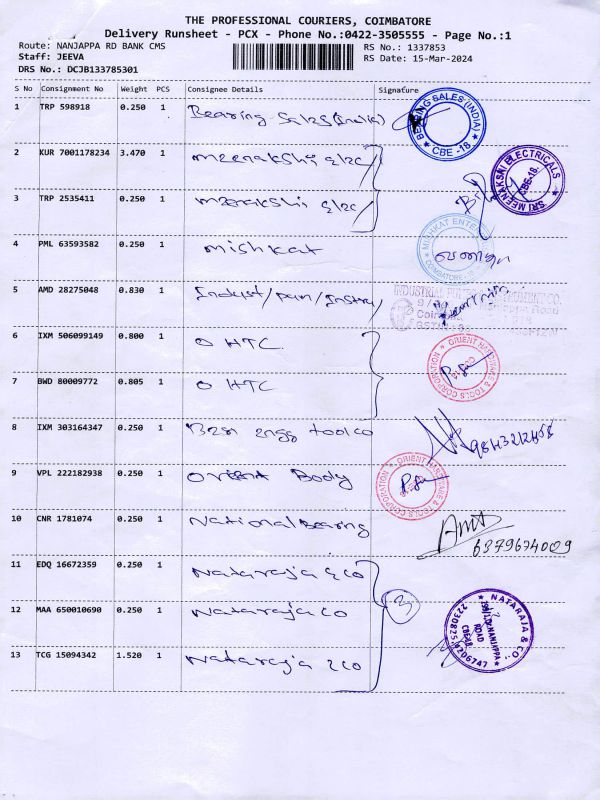 THE PROFESSIONAL COURIERS, COIMBATORE
Delivery Runsheet - PCX - Phone No.:0422-3505555 - Page No.:1
Route: NANJAPPA RD BANK CMS RS No.: 1337853
Staff: JEEVA RS Date: 15-Mar-2024
DRS No.: DCJB133785301
S No Consignment No Weight PCS Consignee Details Signature
1 TRP 598918 0.250 1 Bearing Sales (India) BEARING SALES (INDIA) CBE-18
2 KUR 7001178234 3.470 1 meenakshi elec SRI MEENAKSHI ELECTRICALS CBE-18
3 TRP 2535411 0.250 1 meenakshi elec
4 PML 63593582 0.250 1 mishkat MISHKAT ENTER COIMBATORE-18
5 AMD 28275048 0.830 1 INDUSTRIAL
6 IXM 506099149 0.800 1 O HTC ORIENT HARDWARE & TOOLS CORPORATION
7 BWD 80009772 0.805 1 O HTC
8 IXM 303164347 0.250 1 Best engg toolco
9 VPL 222182938 0.250 1 Orient Body ORIENT HARDWARE & TOOLS CORPORATION
10 CNR 1781074 0.250 1 National Bearing 6379674009
11 EDQ 16672359 0.250 1 Nataraja & co
12 MAA 650010690 0.250 1 Nataraja co 3 NATARAJA & CO. NANJAPPA ROAD
13 TCG 15094342 1.520 1 Nataraja & co